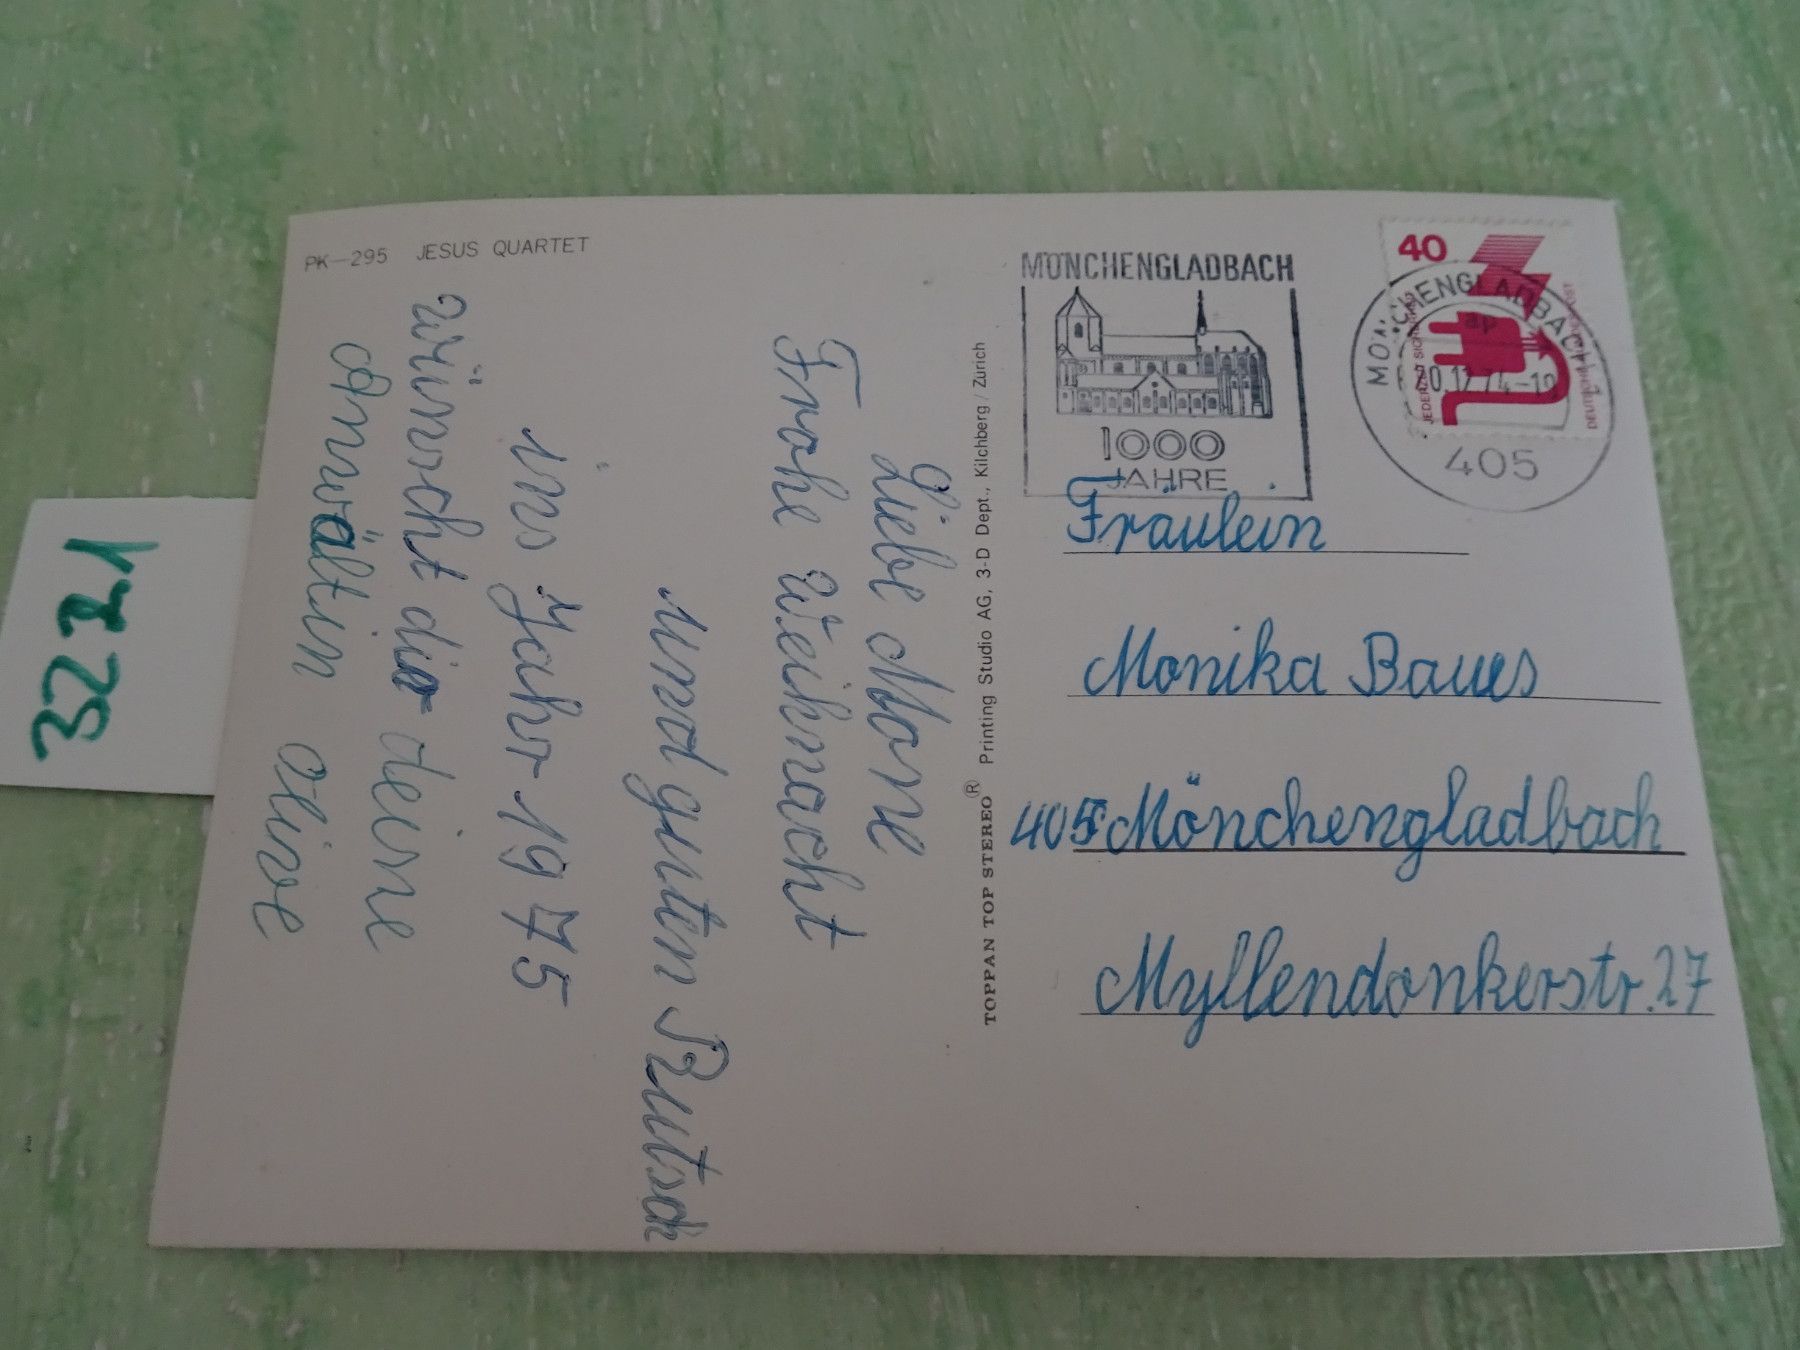 PK—295 JESUS QUARTET
Liebe Mone
Frohe Weihnacht
und guten Rutsch
ins Jahr 1975
wünscht dir deine
Anwältin Olive
TOPPAN TOP STEREO® Printing Studio AG, 3-D Dept., Kilchberg / Zürich
MÖNCHENGLADBACH
1000
JAHRE
40
JEDERZEIT SICHERHEIT
DEUTSCHE BUNDESPOST
MÖNCHENGLADBACH 1
ap
20.12.74-18
405
Fräulein
Monika Baues
405 Mönchengladbach
Myllendonkerstr. 27
3221